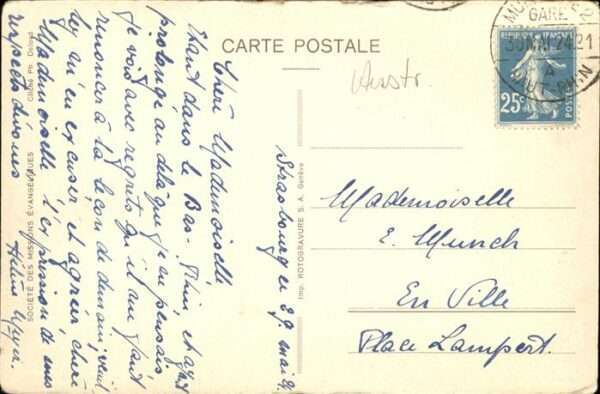 CARTE POSTALE
Ausstr.
MU GARE
30 MAI 24 21
A
HAUT-RHIN
25c
POSTES
Mademoiselle
E. Munch
En Ville
Place Lampert.
Strasbourg ce 29 mai 24
Chère Mademoiselle
Etant dans le Bas-Rhin et ayant
prolongé au delà que je ne pensais
je vois avec regrets qu'il me faut
renoncer à la leçon de demain, veuil-
lez m'en excuser et agréer chère
Mademoiselle l'expression de mes
respects dévoués
Hélène
SOCIÉTÉ DES MISSIONS ÉVANGÉLIQUES Cliché Ph.
Imp. ROTOGRAVURE S. A. Genève